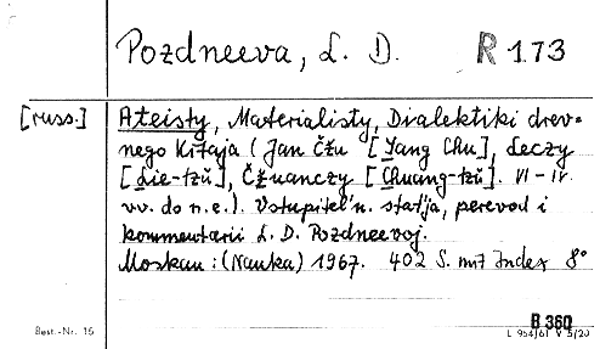 Pozdneeva, L. D. R 173
[russ.] Ateisty, Materialisty, Dialektiki drev=
nego Kitaja (Jan Čžu [Yang Chu], Leczy
[Lie-tzŭ], Čžuanczy [Chuang-tzŭ]. VI-IV.
vv. do n.e.). Vstupitel'n. stat'ja, perevod i
kommentarii L. D. Pozdneevoj.
Moskau: (Nauka) 1967. 402 S. mit Index 8°
B 360
Best.-Nr. 15 L 954/61 V 5/20